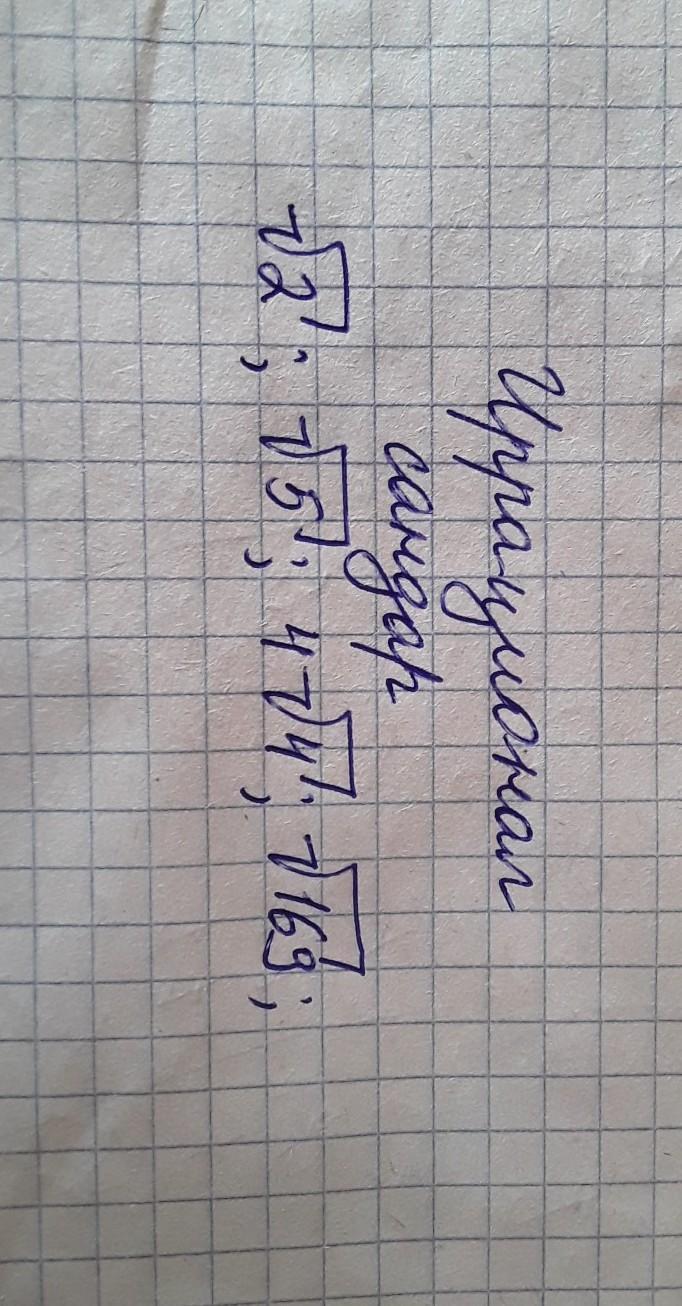 Иррационал
сандар
√2; √5; 4√4; √169;